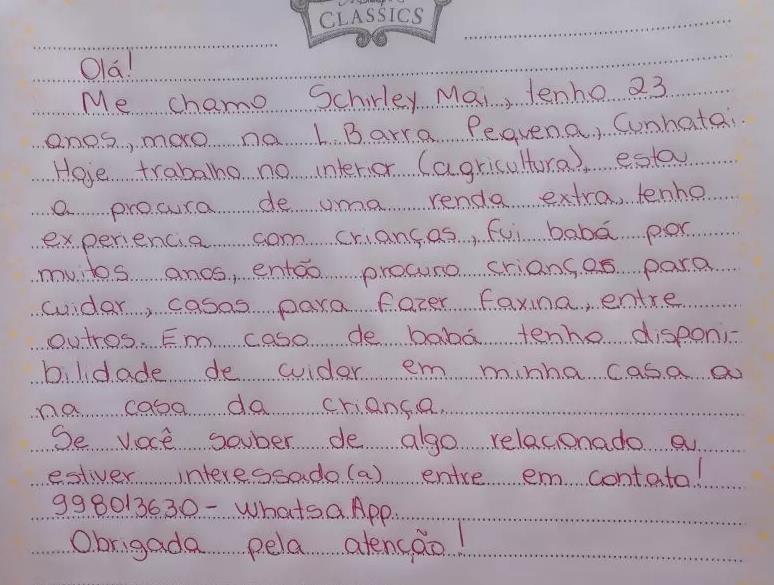 CLASSICS
Olá!
Me chamo Schirley Mai, tenho 23
anos, moro na L. Barra Pequena, Cunhataí.
Hoje trabalho no interior (agricultura), estou
a procura de uma renda extra, tenho
experiencia com crianças, fui babá por
muitos anos, então procuro crianças para
cuidar, casas para fazer faxina, entre
outros. Em caso de babá tenho disponi-
bilidade de cuidar em minha casa ou
na casa da criança.
Se você souber de algo relacionado ou
estiver interessado(a) entre em contato!
998013630 - WhatsaApp.
Obrigada pela atenção!